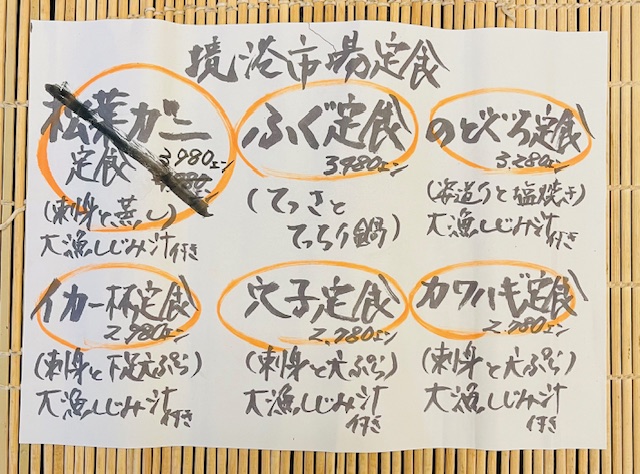 境港市場定食
松葉ガニ
定食 3,980エン
(刺身と蒸し)
大漁しじみ汁付き
ふぐ定食
3,980エン
(てっさと
てっちり鍋)
のどぐろ定食
3,280エン
(姿造りと塩焼き)
大漁しじみ汁
付き
イカ一杯定食
2,980エン
(刺身と下足天ぷら)
大漁しじみ汁
付き
穴子定食
2,780エン
(刺身と天ぷら)
大漁しじみ汁
付き
カワハギ定食
2,780エン
(刺身と天ぷら)
大漁しじみ汁
付き